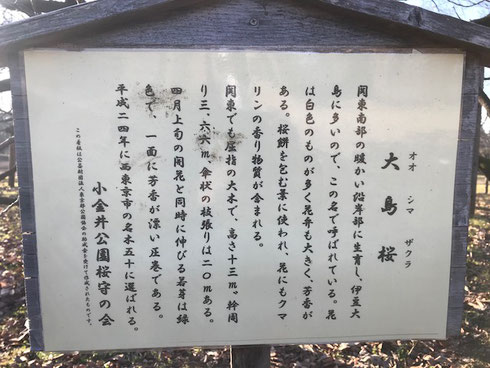 オオ シマ ザクラ
大島桜
関東南部の暖かい沿岸部に生育し、伊豆大
島に多いので、この名で呼ばれている。花
は白色のものが多く花弁も大きく、芳香が
ある。桜餅を包む葉に使われ、花にもクマ
リンの香り物質が含まれる。
関東でも屈指の大木で、高さ十三m。幹周
り三、六六m。傘状の枝張りは二〇mある。
四月上旬の開花と同時に伸びる若芽は緑
色で、一面に芳香が漂い圧巻である。
平成二四年に西東京市の名木五十に選ばれる。
小金井公園桜守の会
この看板は公益財団法人東京都公園協会の助成金を受けて作成されたものです。